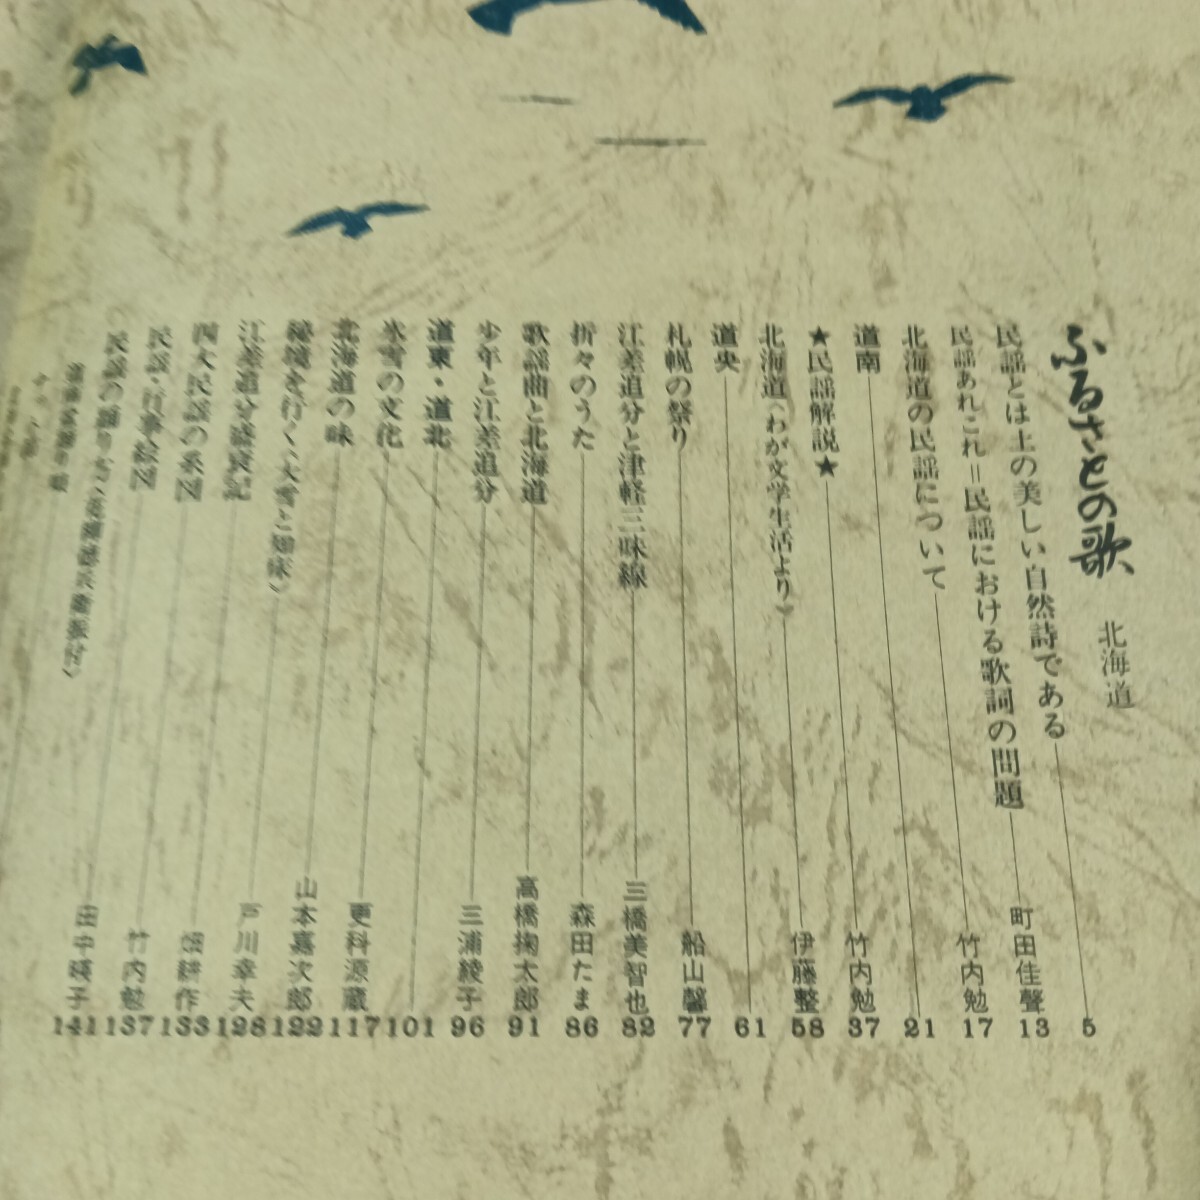 ふるさとの歌 北海道
民謡とは土の美しい自然詩である 5
民謡あれこれ=民謡における歌詞の問題 町田佳聲 13
北海道の民謡について 竹内勉 17
道南 21
★民謡解説★ 竹内勉 37
北海道(わが文学生活より) 伊藤整 58
道央 61
札幌の祭り 船山馨 77
江差追分と津軽三味線 三橋美智也 82
折々のうた 森田たま 86
歌謡曲と北海道 高橋掬太郎 91
少年と江差追分 三浦綾子 96
道東・道北 101
氷雪の文化 更科源蔵 117
北海道の味 山本嘉次郎 122
秘境を行く〈大雪と知床〉 戸川幸夫 128
江差追分盛衰記 畑耕作 133
四大民謡の系図 竹内勉 137
民謡・行事絵図 田中瑛子 141
民謡の踊り方